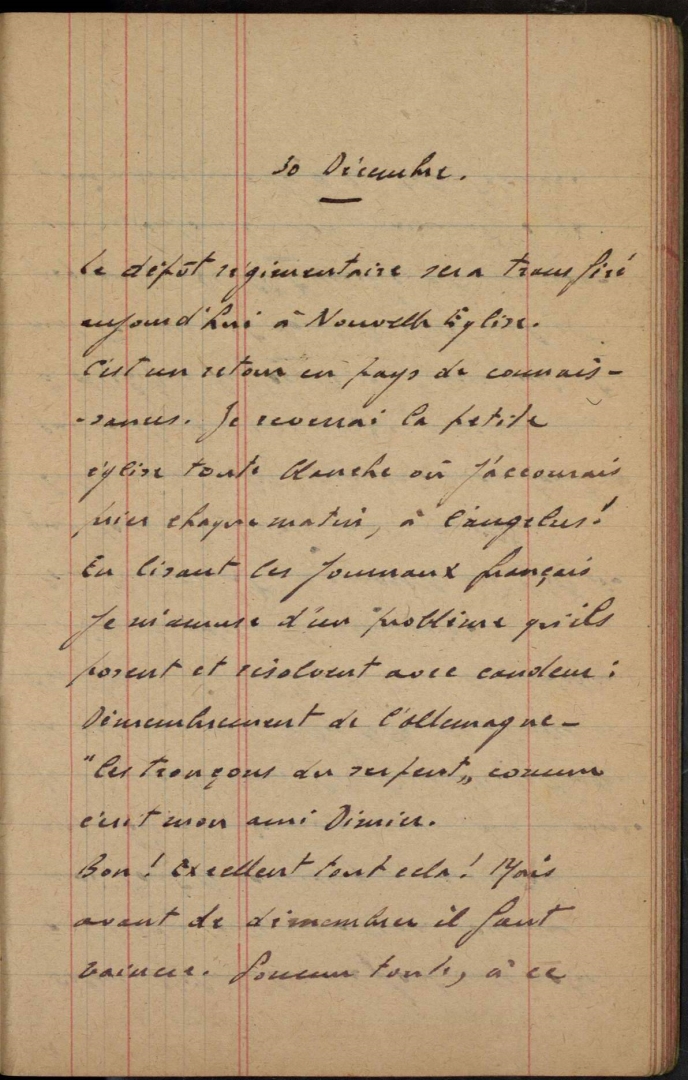 30 Décembre.
Le dépôt régimentaire sera transféré
aujourd'hui à Nouvelle Eglise.
C'est un retour en pays de connais-
-sances. Je reverrai la petite
église toute blanche où j'accourais
prier chaque matin, à l'angelus!
En lisant les journaux français
je m'amuse d'un problème qu'ils
posent et résolvent avec candeur :
Démembrement de l'Allemagne -
"les tronçons du serpent„ comme
écrit mon ami Dimier.
Bon ! Excellent tout cela ! Mais
avant de démembrer il faut
vaincre. Somme toute, à ce